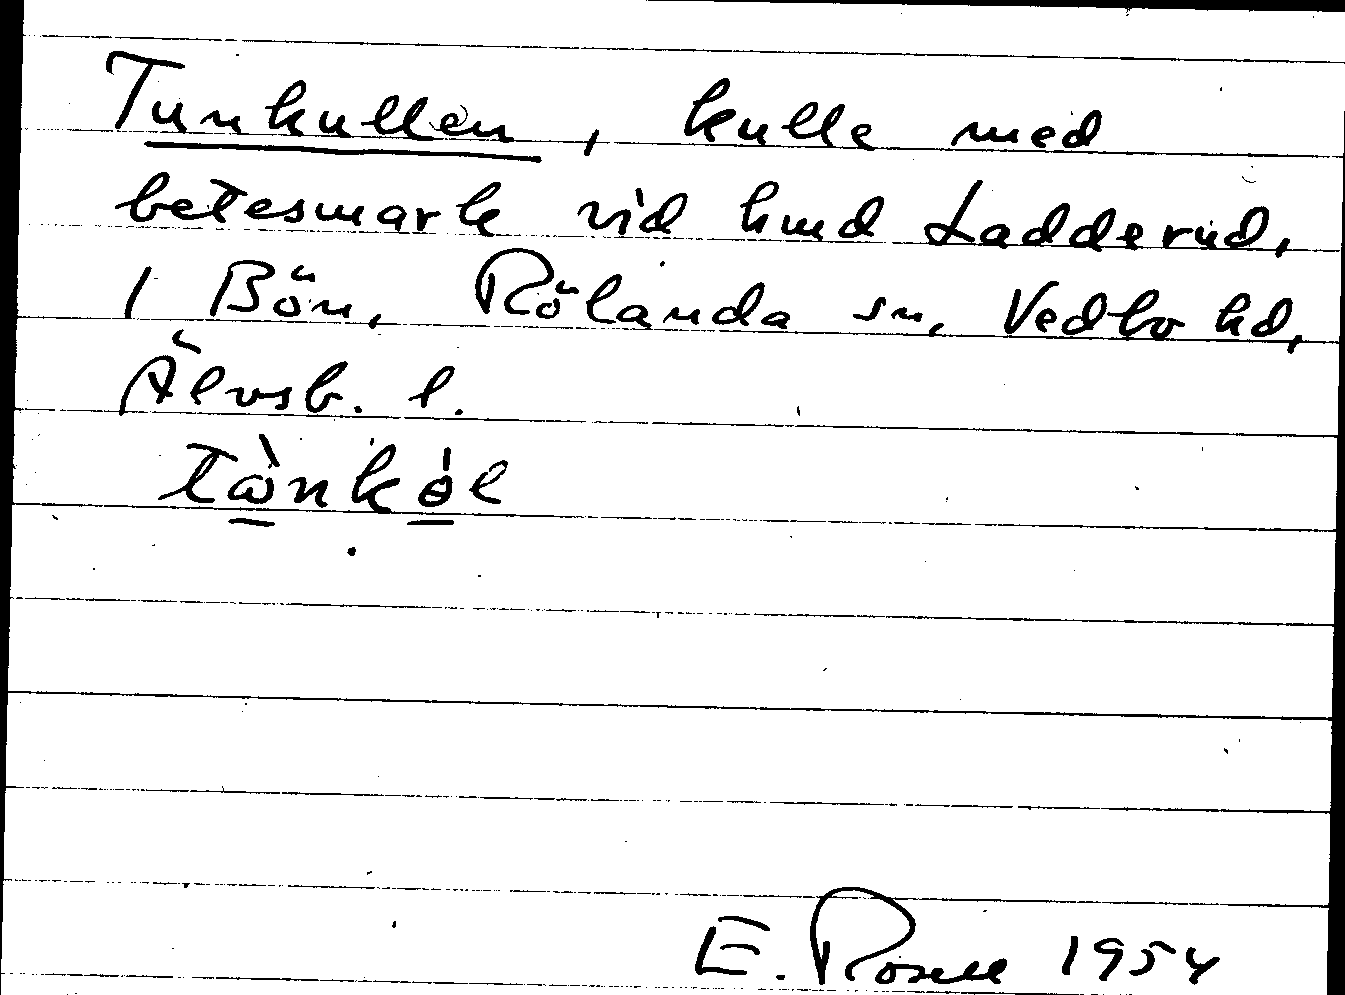 Tunkullen, kulle med
betesmark vid hmd Ladderud,
1 Bön, Rölanda sn, Vedbo hd,
Älvsb. l.
E. Rosell 1954